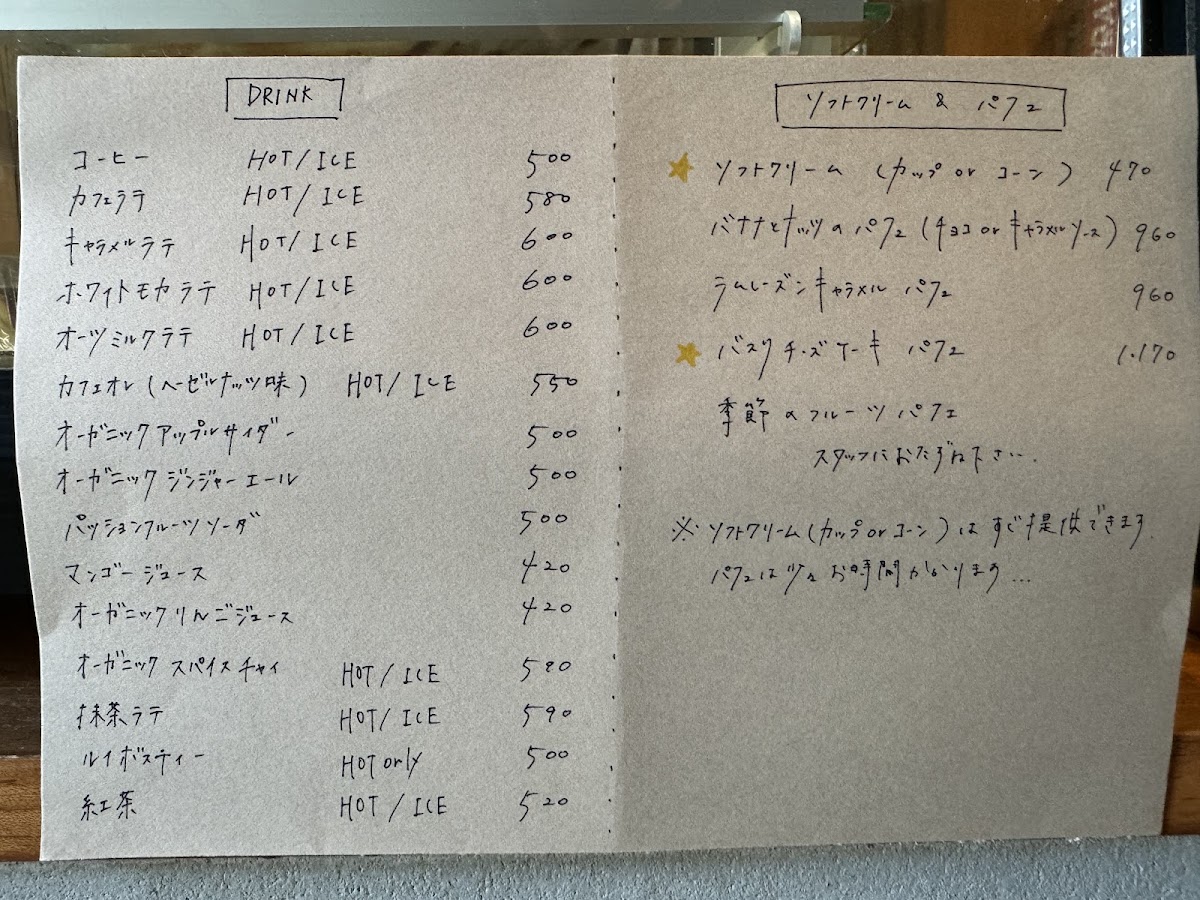 DRINK
コーヒー HOT/ICE 500
カフェラテ HOT/ICE 580
キャラメルラテ HOT/ICE 600
ホワイトモカラテ HOT/ICE 600
オーツミルクラテ HOT/ICE 600
カフェオレ(ヘーゼルナッツ味) HOT/ICE 550
オーガニックアップルサイダー 500
オーガニックジンジャーエール 500
パッションフルーツソーダ 500
マンゴージュース 420
オーガニックりんごジュース 420
オーガニック スパイスチャイ HOT/ICE
抹茶ラテ HOT/ICE 590
ルイボスティー HOT only 500
紅茶 HOT/ICE 520
ソフトクリーム & パフェ
ソフトクリーム (カップ or コーン) 470
バナナとナッツのパフェ(チョコ or キャラメルソース) 960
ラムレーズンキャラメル パフェ 960
バスクチーズケーキ パフェ 1.170
季節のフルーツパフェ
スタッフにおたずね下さい..
※ソフトクリーム(カップ or コーン)はすぐ提供できます.
パフェは少々お時間かかります...